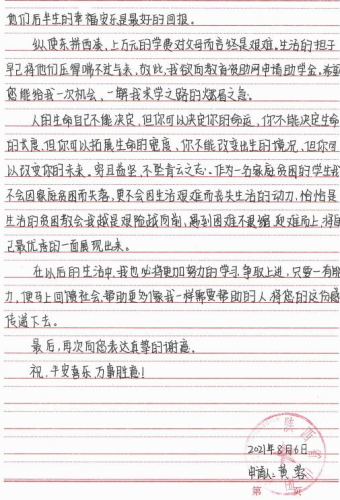 他们后半生的幸福安乐是最好的回报。
纵使东拼西凑，上万元的学费对父母而言终是艰难。生活的担子
早已将他们压得喘不过气来，故此，我欲向教育资助网申请助学金，希望
您能给我一次机会，一解我求学之路的燃眉之急。
人的生命自己不能决定，但你可以决定你的命运，你不能决定生命
的长度，但你可以拓展生命的宽度，你不能改变出生的情况，但你可
以改变你的未来。穷且益坚，不坠青云之志。作为一名家庭贫困的学生我
不会因家庭贫困而失落，更不会因生活艰难而丧失生活的动力，恰恰是
生活的贫困教会我越是艰险越向前，遇到困难不退缩，迎难而上，将自
己最优秀的一面展现出来。
在以后的生活中，我也必将更加努力的学习，争取上进，只要一有能
力，便马上回馈社会，帮助更多像我一样需要帮助的人将您的这份
传递下去。
最后，再次向您表达真挚的谢意。
祝：平安喜乐，万事胜意！
陕西省
2021年8月6日
申请人：黄蓉
第 页